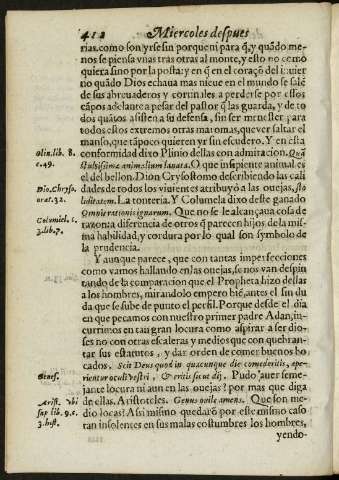 412 Miercoles despues
rias. como son yrse sin porque ni para q̃, y quãdo me-
nos se piensa vnas tras otras al monte, y esto no como
quiera sino por la posta: y en q̃ en el coraçõ del inuier
no quãdo Dios echaua mas nieue en el mundo se salẽ
de sus abreuaderos y cortinales a perderse por essos
cãpos adelante a pesar del pastor q̃ las guarda, y de to
dos quãtos assisten a su defensa, sin ser menester para
todos estos extremos otras maromas, que ver saltar el
manso, que tãpoco quieren ser escudero. Y en esta
Olin. lib. 8. conformidad dixo Plinio dellas con admiracion. Quã
c. 49. stultissima animalium lanata. O que insipiente animal es
el del bellon. Dion Crysostomo describiendo las cali
Dio. Chryso. dades de todos los viuientes atribuyó a las ouejas, sto
orat. 32. liditatem. La tonteria. Y Columela dixo deste ganado
Columel. c. Omni rationis ignarum. Que no se le alcançaua cosa de
3. lib. 7. razon: a diferencia de otros q̃ parecen hijos de la mis-
ma habilidad, y cordura por lo qual son symbolo de
la prudencia.
Y aunque parece, que con tantas imperfecciones
como vamos hallando en las ouejas, se nos van despin
tando de la comparacion que el Propheta hizo dellas
a los hombres, mirandolo empero biẽ, antes el sin du
da que se sube de punto el perfil. Porque desde el dia
en que pecamos con nuestro primer padre Adan, in-
currimos en tan gran locura como aspirar a ser dio-
ses no con otras escaleras y medios que con quebran-
tar sus estatutos, y dar orden de comer buenos bo
cados. Scit Deus quod in quacunque die comederitis, ape-
Genes. rientur oculi vestri, & eritis sicut dij. Pudo auer seme-
jante locura ni aun en las ouejas? por mas que diga
Arist. vbi de ellas Aristoteles. Genus ouile amens. Que son me-
sup lib. 9. c. dio locas? Assi mismo quedarõ por este mismo caso
3. hist. tan insolentes en sus malas costumbres los hombres,
yendo-